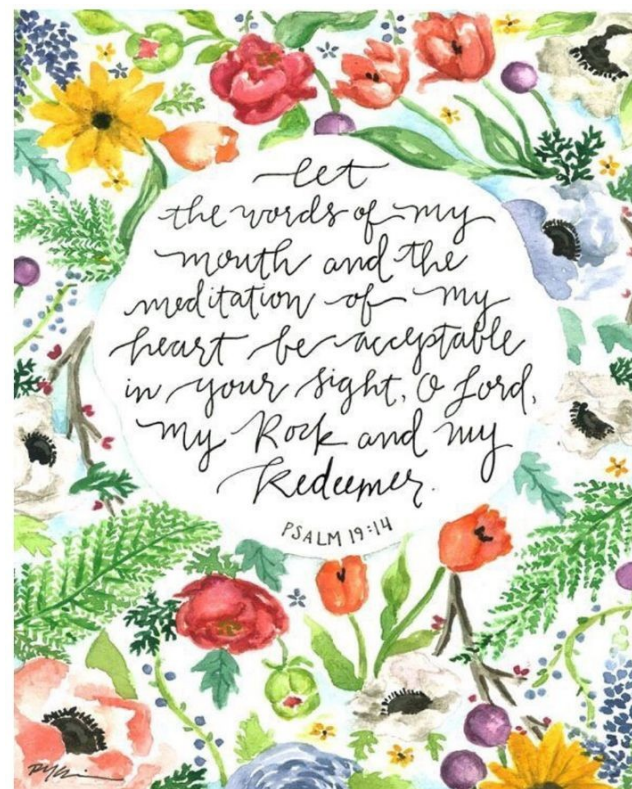 let
the words of my
mouth and the
meditation of my
heart be acceptable
in your sight, O Lord,
my Rock and my
Redeemer.
PSALM 19:14